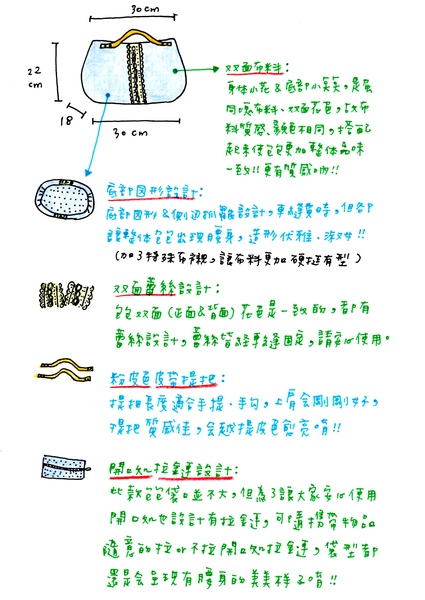 30 cm
22
cm
18
30 cm
双面布料:
身体小花 & 底部小点点,是属
同噗布料、双面花色,故布
料質感、顏色相同,搭配
起來使包包更加整体品味
一致!!更有質感喲!!
底部圓形設計:
底部圓形 & 側边抓皺設計,車縫費時,但各卻
讓整体包包出現腰身,造形優雅、
(加了特殊布襯,讓布料更加硬挺有型)
双面蕾絲設計:
包双面(正面&背面)花色是一致的,都有
蕾絲設計,蕾絲皆経車縫固定,請安心使用。
粉皮色皮帶提把:
提把長度適合手提、手勾,上肩会剛剛好,
提把質感佳,会越提皮色愈亮唷!!
開口処拉鍊設計:
此款包包袋口並不大,但為了讓大家安心使用
開口処也設計有拉鍊,可隨攜帶物品
隨意的拉or不拉開口処拉鍊,袋型都
還是会呈現有腰身的美美樣子唷!!